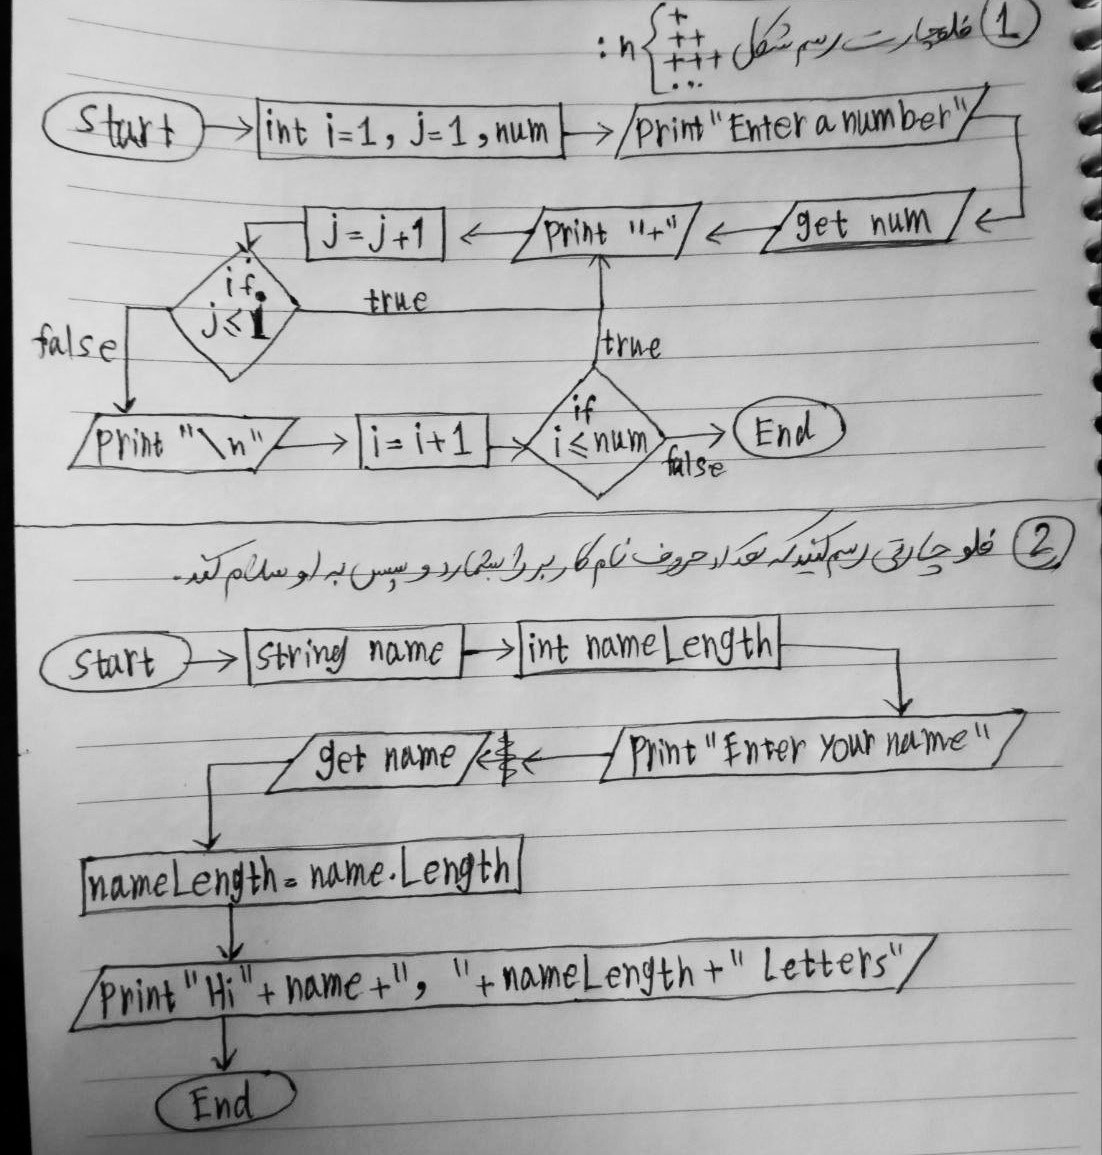 ① فلوچارت رسم شکل
+
++
+++
...
: n
Start
int i=1, j=1, num
Print "Enter a number"
get num
Print "+"
j=j+1
if
j≤1
true
false
Print "\n"
i=i+1
if
i≤num
true
false
End
② فلوچارتی رسم کنید که تعداد حروف نام کاربر را بشمارد و سپس به او سلام کند.
Start
String name
int nameLength
Print "Enter your name"
get name
nameLength = name.Length
Print "Hi" + name + ", " + nameLength + " Letters"
End